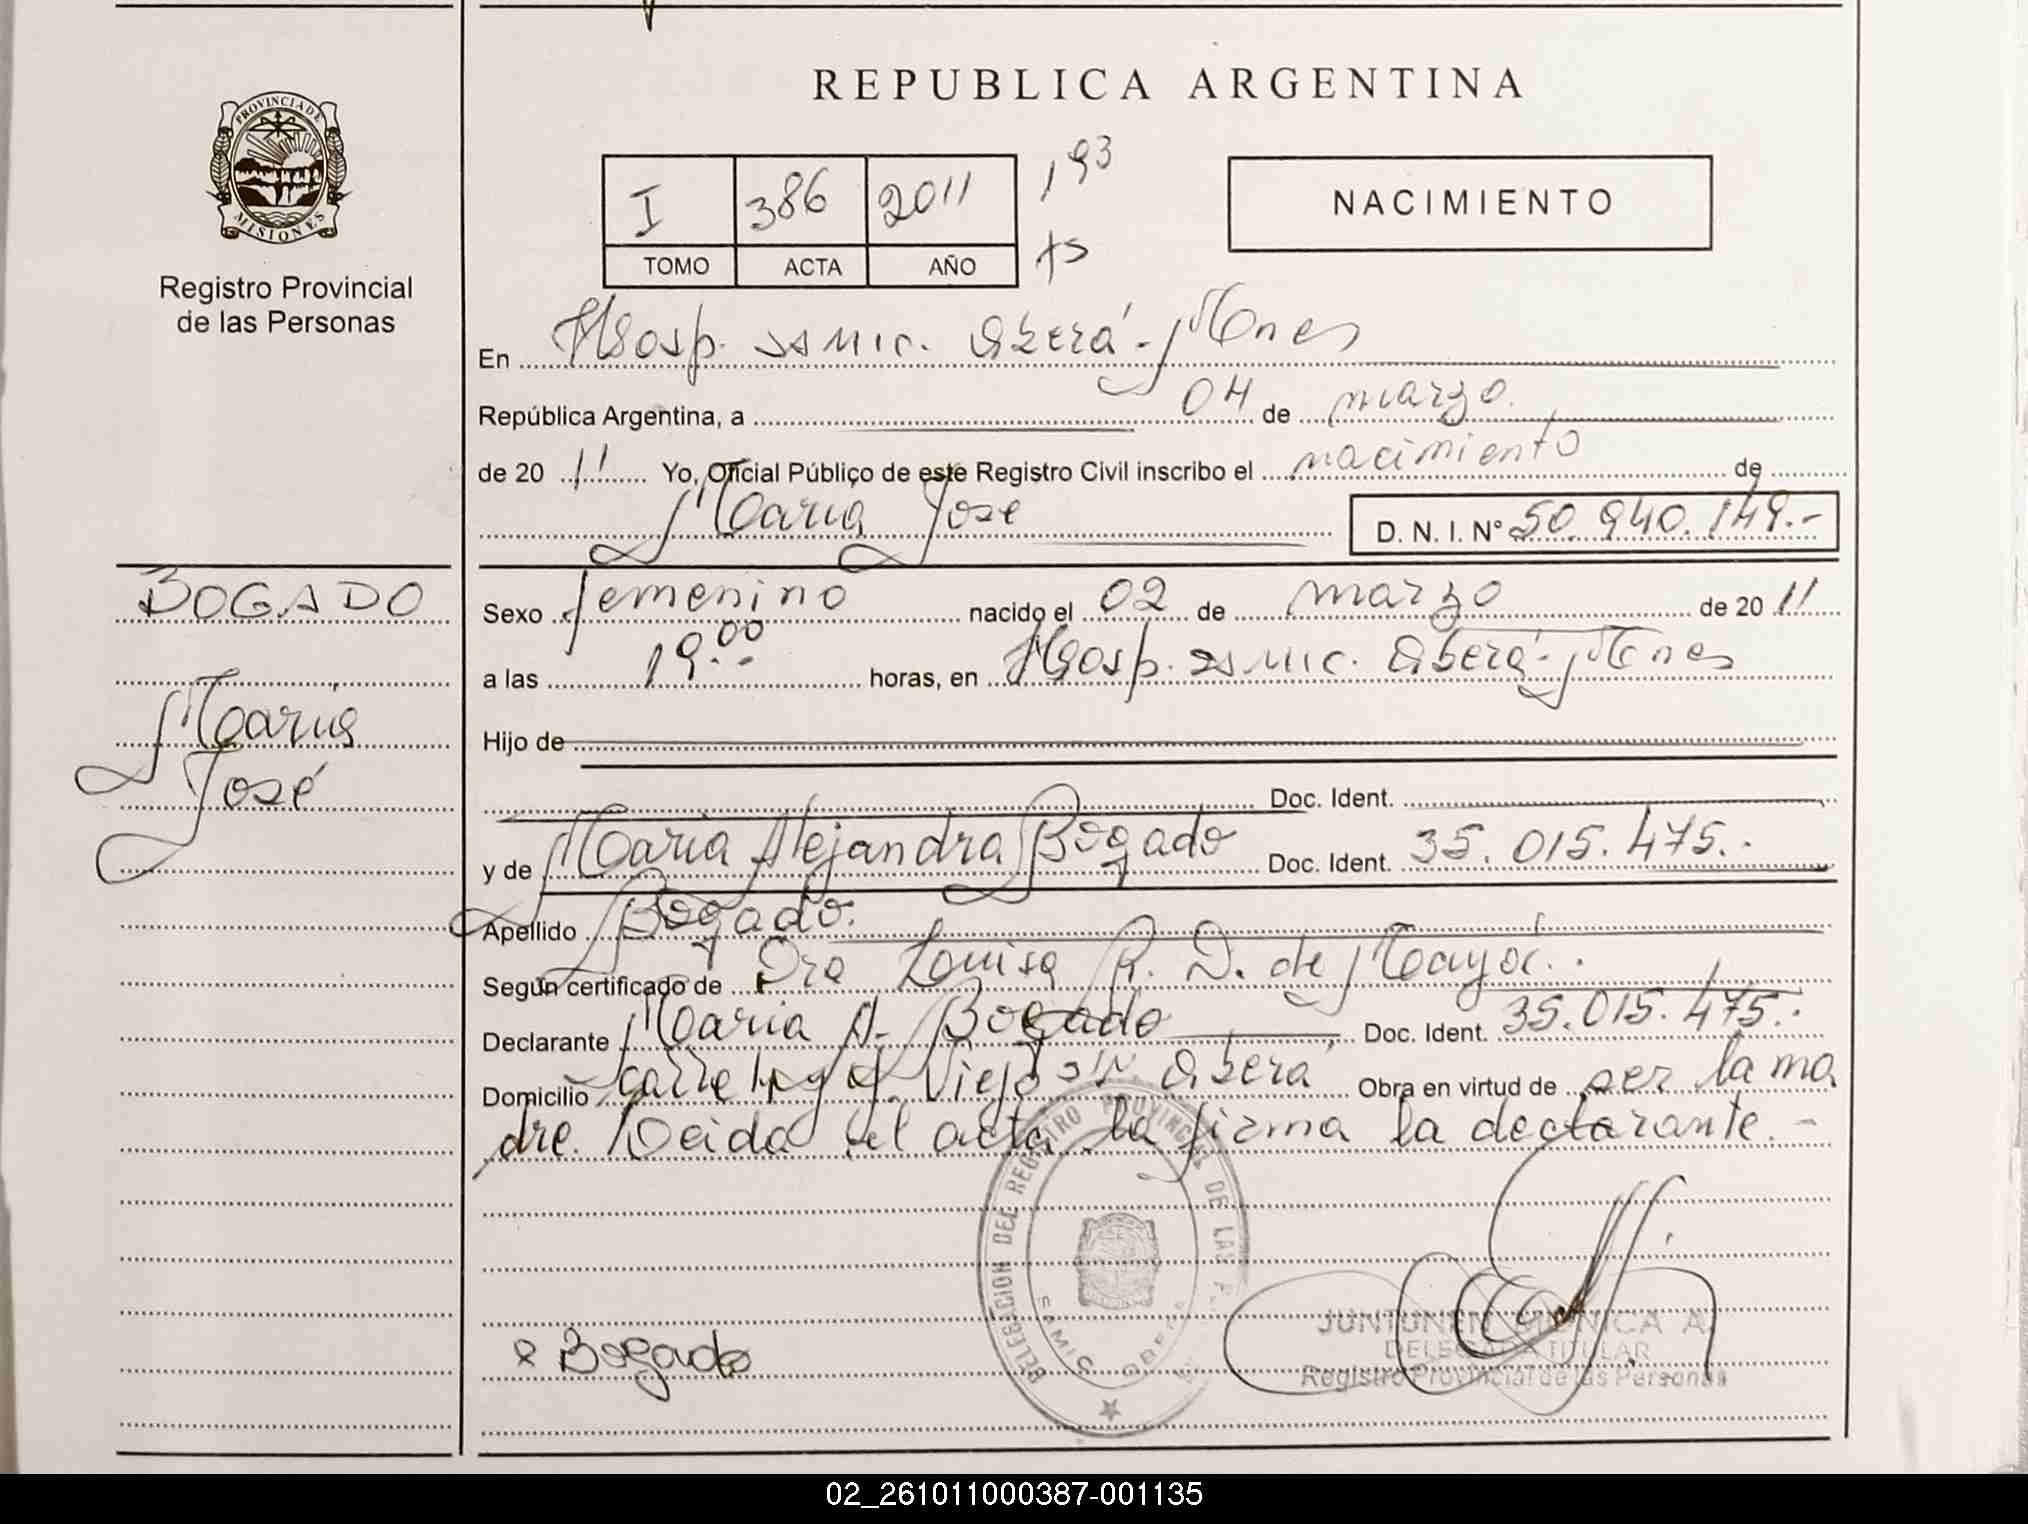 REPUBLICA ARGENTINA
PROVINCIA DE
MISIONES
Registro Provincial
de las Personas
I 386 2011 193
TOMO ACTA AÑO
NACIMIENTO
En Hosp. SAMIC. Oberá - Mnes
República Argentina, a 04 de marzo
de 20 11 Yo, Oficial Público de este Registro Civil inscribo el nacimiento de
Maria Jose D. N. I. N° 50.940.149.-
BOGADO
Maria
José
Sexo femenino nacido el 02 de marzo de 20 11
a las 19.00 horas, en Hosp. SAMIC. Oberá - Mnes
Hijo de
Doc. Ident.
y de Maria Alejandra Bogado Doc. Ident. 35.015.475.-
Apellido Bogado.
Según certificado de Dra R. D. de
Declarante Maria A. Bogado Doc. Ident. 35.015.475.-
Domicilio Viejo Oberá Obra en virtud de ser la ma
dre. Leida el acta la firma la declarante.-
DELEGACION DEL REGISTRO PROVINCIAL DE LAS
SAMIC OBERA
Bogado
JUNTUNEN MONICA A.
DELEGADA TITULAR
Registro Provincial de las Personas
02_261011000387-001135